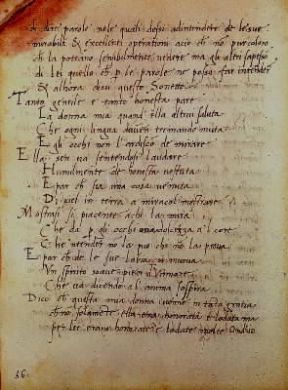 di dire parole nele quali dessi adintendere de le sue
mirabili & excellenti operationi acio ch no pur coloro
ch la poteano sensibilmente vedere ma gli altri
di lei quello ch p le parole ne posso far intendere
& alhora dixi questo Sonetto
Tanto gentile e tanto honesta pare
La donna mia quand ella altrui saluta
Che ogni lingua divien tremando muta
E gli occhi non l ardiscon di mirare
Ella sen va sentendosi laudare
Humilmente de honesta vestuta
E par ch sia una cosa venuta
Di ciel in terra a miracol mostrare
Mostrasi si piacente a chi la mira
Che da p gli occhi una dolcezza al core
Che ntender no la puo chi no la prova
E par ch de le sue labia si mova
Un spirito soave pien d
Che va dicendo al anima sospira
Dico ch questa mia donna venne in tata gratia
ch no solamete ella era honorata e laudata ma
per lei erano honorate e laudate molte Ondio
36